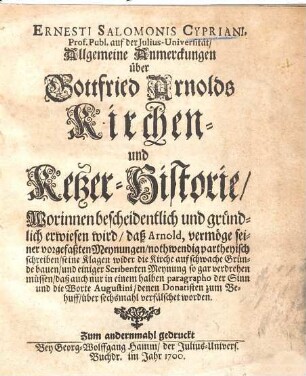 ERNESTI SALOMONIS CYPRIANI,
Prof. Publ. auf der Julius-Universität/
Allgemeine Anmerckungen
über
Gottfried Arnolds
Kirchen-
und
Ketzer-Historie/
Worinnen bescheidentlich und gründ-
lich erwiesen wird/ daß Arnold, vermöge sei-
ner vorgefaßten Meynungen/ nothwendig partheyisch
schreiben/ seine Klagen wider die Kirche auf schwache Grün-
de bauen/ und einiger Scribenten Meynung so gar verdrehen
müssen/ daß auch nur in einem halben paragrapho der Sinn
und die Worte Augustini/ denen Donatisten zum Be-
huff/ über sechsmahl verfälschet worden.
Zum andernmahl gedruckt
Bey Georg-Wolffgang Hamm/ der Julius-Univers.
Buchdr. im Jahr 1700.